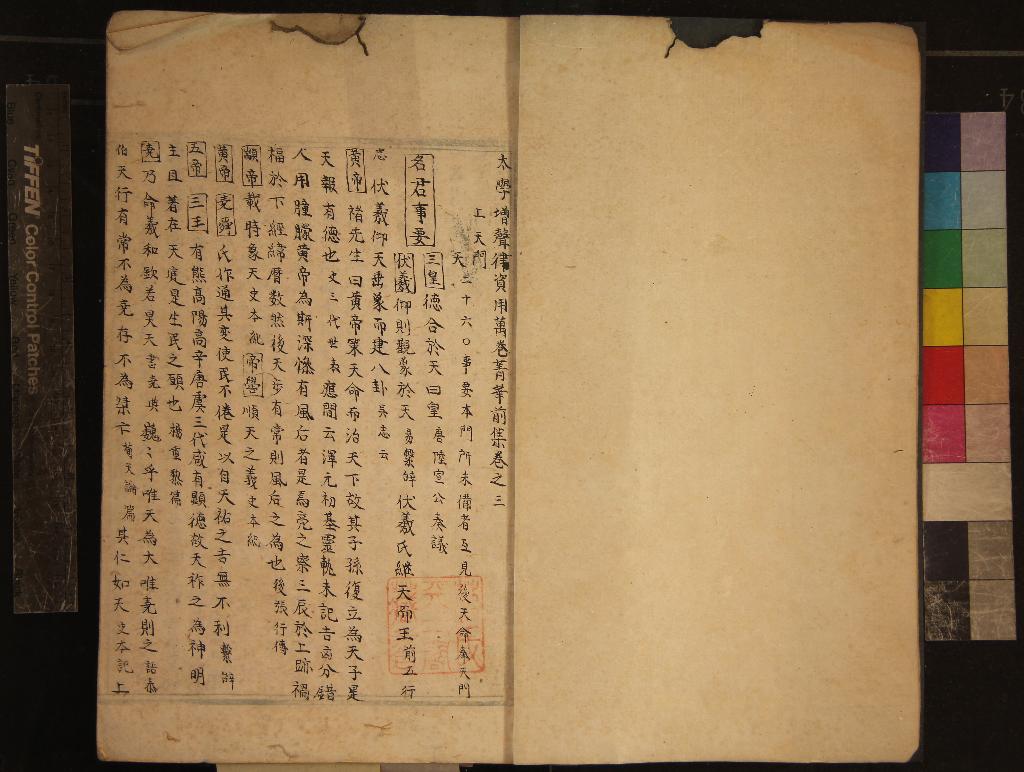 太學增聲律資用萬卷菁華前集卷之三
上天門
天 三十六〇事要本門所未備者互見後天命奉天門
名君事要
三皇 德合於天曰皇 唐陸宣公奏議
伏羲 仰則觀象於天 易繫辝 伏羲氏継天而王 前五行
志 伏羲仰天垂象而建八卦 吳志云
黄帝 褚先生曰黄帝策天命而治天下故其子孫復立為天子是
天報有德也 史三代世表 應間云渾元初基霊軌未記吉凶分錯
人用朣朦黄帝為斯深慘有風后者是焉亮之察三辰於上跡禍
福於下經緯曆数然後天步有常則風后之為也 後張行傳
顓帝 載時象天 史本紀 帝嚳 順天之義 史本紀
黄帝 堯舜 氏作通其变使民不倦是以自天祐之吉無不利 繫辝
五帝 三王 有熊高陽高辛唐虞三代咸有顯德故天祚之為神明
主且著在天庭是生民之頭也 楊重黎篇
堯 乃命羲和欽若昊天 書堯典 巍〻乎唯天為大唯堯則之 語泰
伯 天行有常不為堯存不為桀亡 荀天論篇 其仁如天 史本記上
TIFFEN Color Control Patches